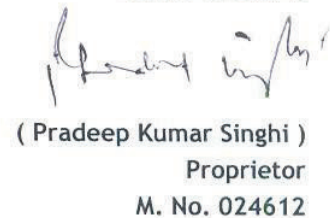 ( Pradeep Kumar Singhi )
Proprietor
M. No. 024612